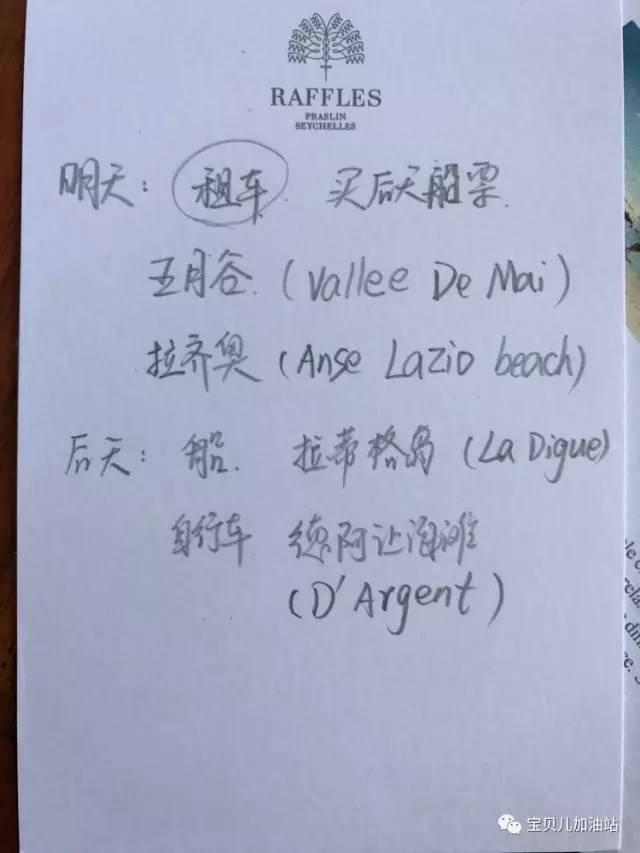 RAFFLES
PRASLIN
SEYCHELLES
明天： 租车. 买后天船票.
五月谷. (Vallee De Mai)
拉齐奥 (Anse Lazio beach)
后天： 船. 拉蒂格岛 (La Digue)
自行车 德阿让海滩
(D'Argent)
宝贝儿加油站